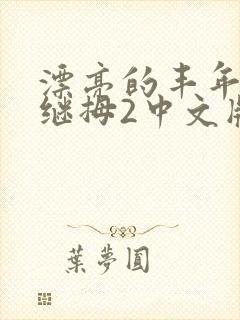 漂亮的丰年
继拇2中文版
葉夢圓